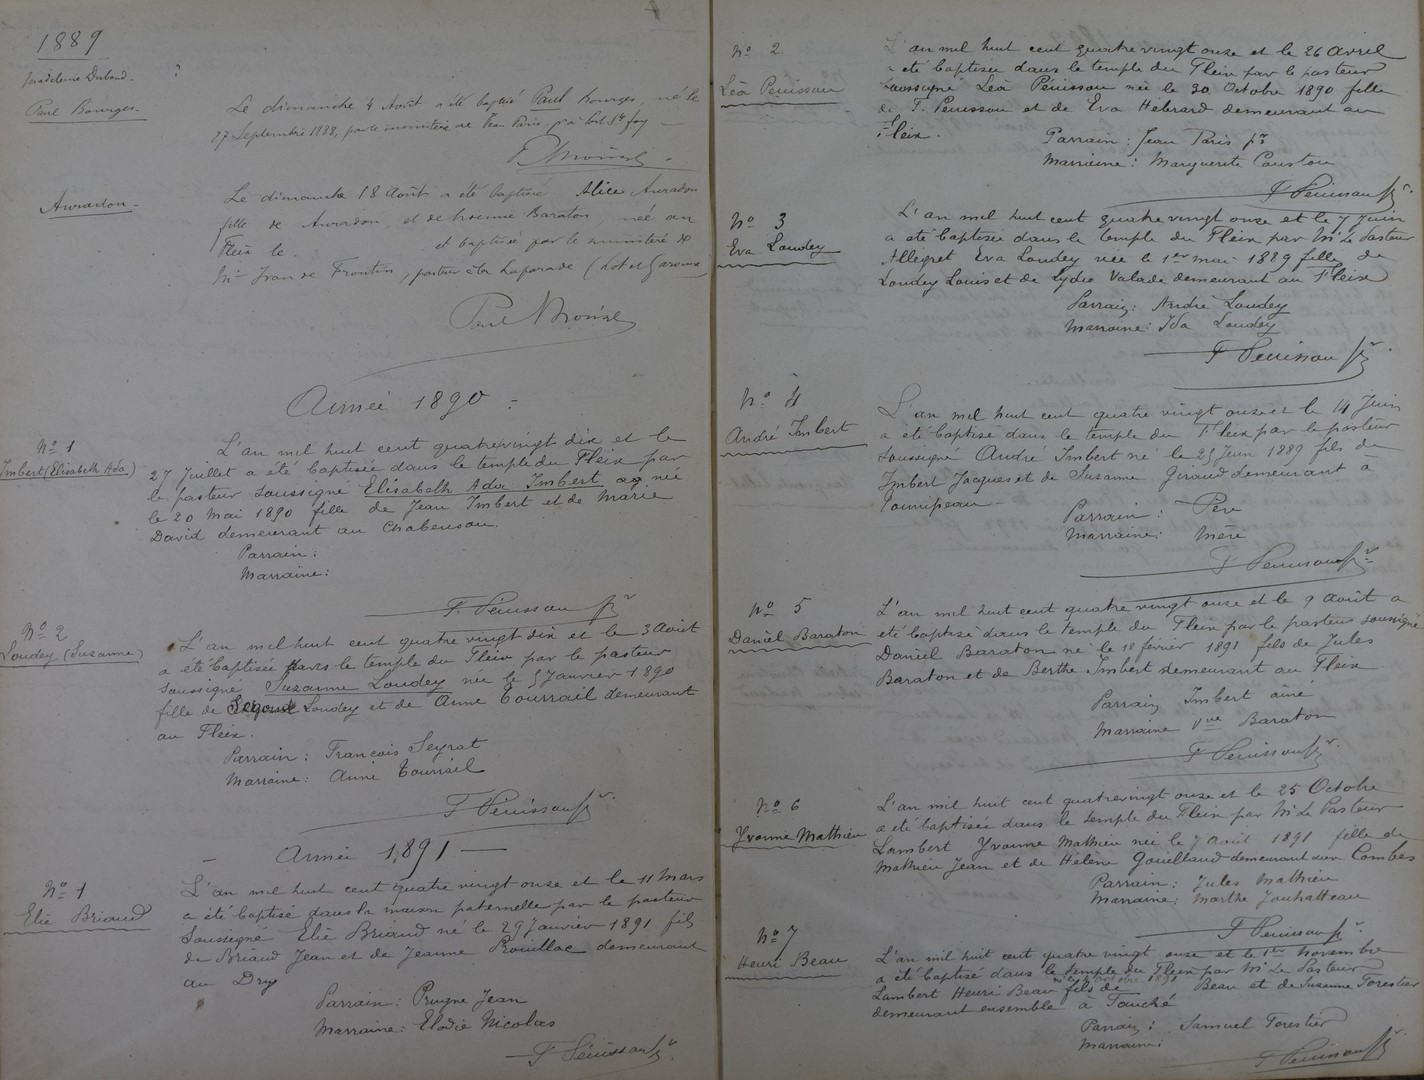 1889
Madeleine Duband
Paul Bourges
Le dimanche 4 Août a été baptisé Paul Bourges, né le
27 Septembre 1888, par le ministère de Jean Paris, pr à Port Ste foy
Auradon
Le dimanche 18 Août a été baptisé Alice Auradon
fille de Auradon, et de Baraton, née au
Fleix le et baptisée par le ministère de
Mr Jean de Frontin, pasteur à Laparade (Lot et Garonne
Année 1890
No 1
Imbert (Elisabeth Ada)
L'an mil huit cent quatrevingt dix et le
27 Juillet a été baptisée dans le temple du Fleix par
le pasteur soussigné Elisabeth Ada Imbert née
le 20 Mai 1890 fille de Jean Imbert et de Marie
David demeurant au Chabensou.
Parrain :
Marraine :
F. Pénissou pr
No 2
Loudey (Suzanne)
L'an mil huit cent quatre vingt dix et le 3 Août
a été baptisée dans le temple du Fleix par le pasteur
soussigné Suzanne Loudey née le 5 Janvier 1890
fille de Segond Loudey et de Anne Tourrail demeurant
au Fleix.
Parrain : François Seyrat
Marraine : Anne Tourrail
F. Pénissou pr
Année 1891
No 1
Elie Briaud
L'an mil huit cent quatre vingt onze et le 11 Mars
a été baptisé dans la maison paternelle par le pasteur
soussigné Elie Briaud né le 29 Janvier 1891 fils
de Briaud Jean et de Jeanne Rouillac demeurant
au Dry
Parrain : Prugne Jean
Marraine : Elodie Nicolas
F. Pénissou pr
No 2
Léa Pénissou
L'an mil huit cent quatre vingt onze et le 26 Avril
a été baptisée dans le temple du Fleix par le pasteur
soussigné Léa Pénissou née le 30 Octobre 1890 fille
de F. Penissou et de Eva Hebrard demeurant au
Fleix.
Parrain : Jean Paris pr
Marraine : Marguerite Couston
F. Penissou pr
No 3
Eva Loudey
L'an mil huit cent quatre vingt onze et le 7 Juin
a été baptisée dans le temple du Fleix par Mr Le Pasteur
Allégret Eva Loudey née le 1er mai 1889 fille de
Loudey Louis et de Lydie Valade demeurant au Fleix
Parrain : André Loudey
Marraine : Ida Loudey
F Penissou pr
No 4
André Imbert
L'an mil huit cent quatre vingt onze et le 14 Juin
a été baptisé dans le temple du Fleix par le pasteur
soussigné André Imbert né le 25 Juin 1889 fils de
Imbert Jacques et de Suzanne Giraud demeurant à
Parrain : Père
Marraine : Mère
F Penissou pr
No 5
Daniel Baraton
L'an mil huit cent quatre vingt onze et le 9 Août a
été baptisé dans le temple du Fleix par le pasteur soussigné
Daniel Baraton né le 18 février 1891 fils de Jules
Baraton et de Berthe Imbert demeurant au Fleix
Parrain Imbert ainé
Marraine Vve Baraton
F Penissou pr
No 6
Yvonne Mathieu
L'an mil huit cent quatrevingt onze et le 25 Octobre
a été baptisée dans le temple du Fleix par Mr Le Pasteur
Lambert Yvonne Mathieu née le 7 Août 1891 fille de
Mathieu Jean et de Hélène Gouilland demeurant aux Combes
Parrain : Jules Mathieu
Marraine : Marthe Jouhatteau
F Penissou pr
No 7
Henri Beau
L'an mil huit cent quatre vingt onze et le 1er Novembre
a été baptisé dans le temple du Fleix par Mr Le Pasteur
Lambert Henri Beau né le octobre 1891 fils de Beau et de Suzanne Forestier
demeurant ensemble à Fouché
Parrain : Samuel Forestier
Marraine :
F Penissou pr